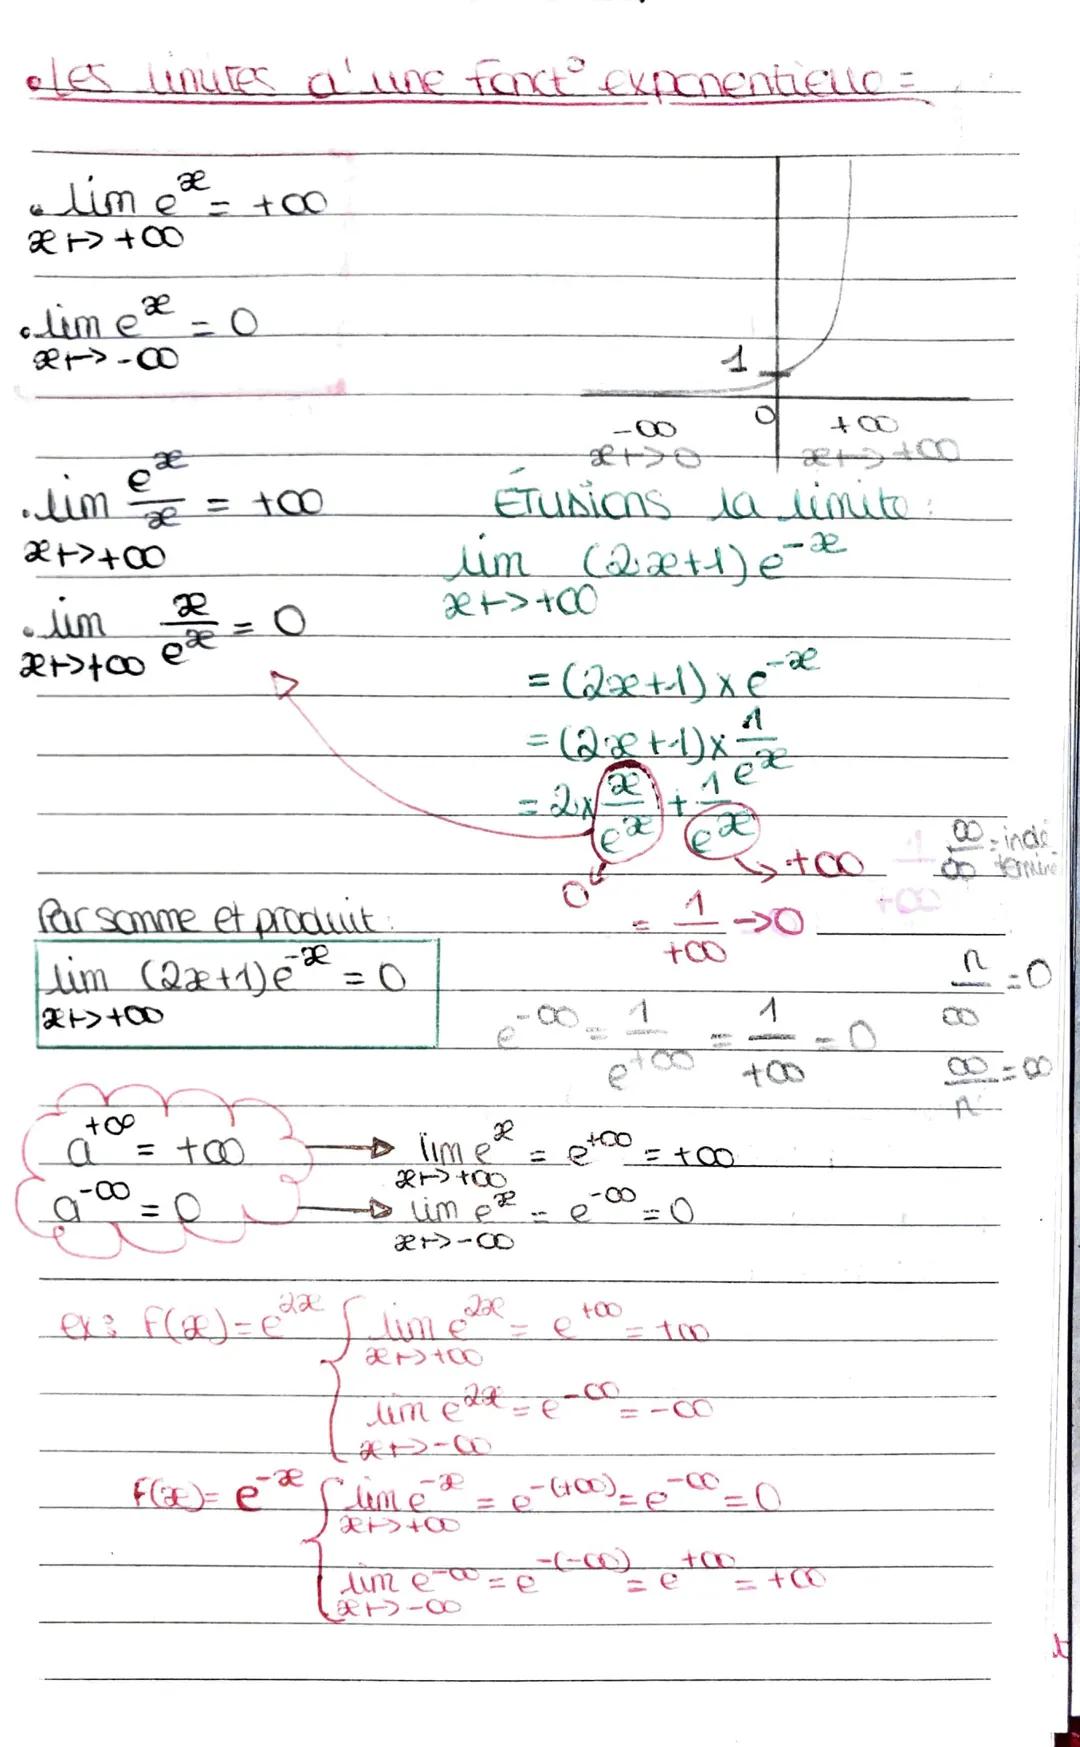 • Les limites d'une fonct° exponentielle =
• lim e^x = +∞
x↦+∞
• lim e^x = 0
x↦-∞
1
0
-∞ +∞
x↦0 x↦+∞
• lim e^x/x = +∞
x↦+∞
• lim x/e^x = 0
x↦+∞
Étudions la limite :
lim (2x+1)e^-x
x↦+∞
= (2x+1) × e^-x
= (2x+1) × 1/e^x
= 2 × x/e^x + 1/e^x
0 → +∞
= 1/+∞ → 0
1/+∞
∞/∞ = indé-
terminé
n/∞ = 0
∞/n = ∞
Par somme et produit :
lim (2x+1)e^-x = 0
x↦+∞
e^-∞ = 1/e^+∞ = 1/+∞ = 0
a^+∞ = +∞ → lim e^x = e^+∞ = +∞
x↦+∞
a^-∞ = 0 → lim e^x = e^-∞ = 0
x↦-∞
ex : F(x) = e^2x { lim e^2x = e^+∞ = +∞
x↦+∞
lim e^2x = e^-∞ = -∞
x↦-∞
F(x) = e^-x { lim e^-x = e^-(+∞) = e^-∞ = 0
x↦+∞
lim e^-∞ = e^-(-∞) = e^+∞ = +∞
x↦-∞
t